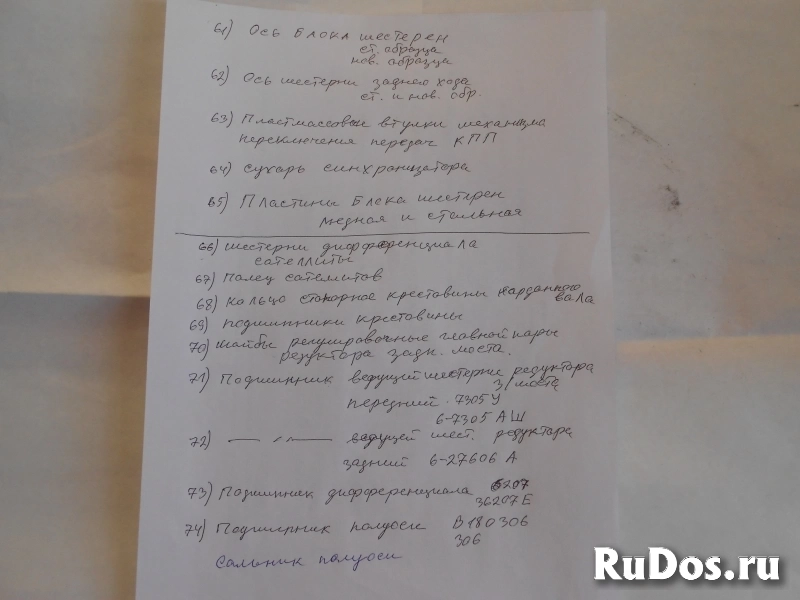 61) Ось Блока шестерен
ст. образца
нов. образца
62) Ось шестерни заднего хода
ст. и нов. обр.
63) Пластмассовые втулки механизма
переключения передач КПП
64) сухарь синхронизатора
65) Пластины Блока шестерен
медная и стальная
66) шестерни дифференциала
сателлиты
67) Палец сателлитов
68) Кольцо стопорное крестовины карданного
вала
69) подшипники крестовины
70) шайбы регулировочные главной пары
редуктора задн. моста.
71) Подшипник ведущей шестерни редуктора
з/моста
передний 7305У
6-7305 АШ
72) — „ — ведущей шест. редуктора
задний 6-27606 А
73) Подшипник дифференциала 6207
36207Е
74) Подшипник полуоси В180306
306
Сальник полуоси
RuDos.ru